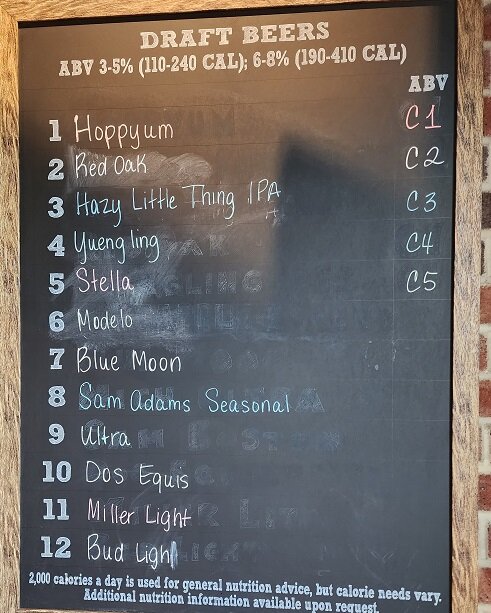 DRAFT BEERS
ABV 3-5% (110-240 CAL); 6-8% (190-410 CAL)
ABV
1 Hoppyum C1
2 Red Oak C2
3 Hazy Little Thing IPA C3
4 Yuengling C4
5 Stella C5
6 Modelo
7 Blue Moon
8 Sam Adams Seasonal
9 Ultra
10 Dos Equis
11 Miller Light
12 Bud Light
2,000 calories a day is used for general nutrition advice, but calorie needs vary.
Additional nutrition information available upon request.